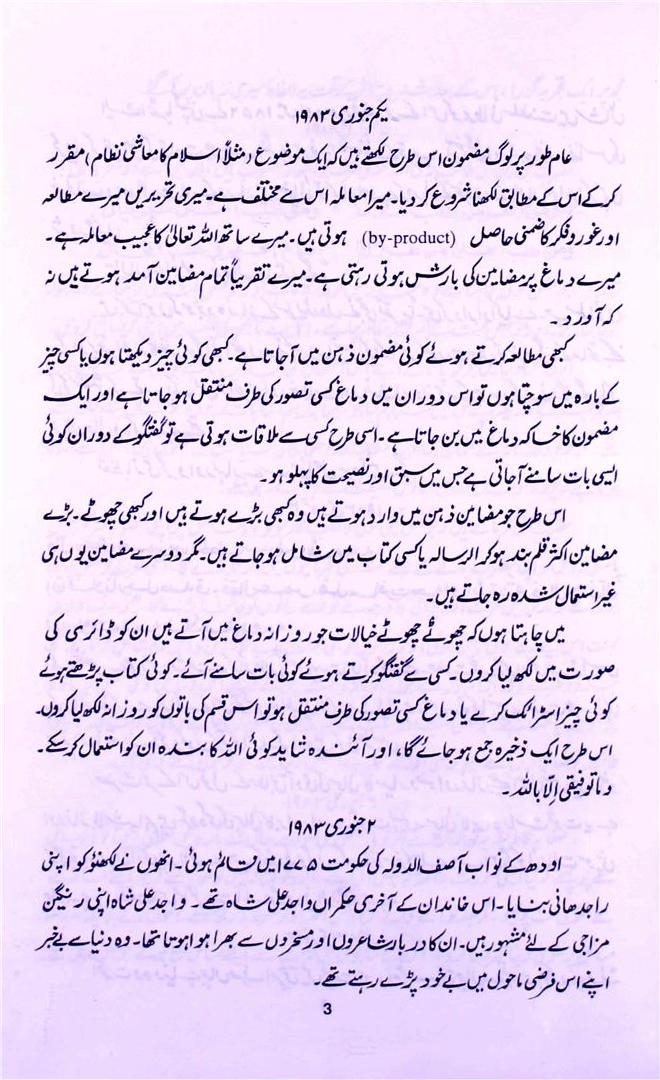 یکم جنوری ۱۹۸۳
عام طور پر لوگ مضمون اس طرح لکھتے ہیں کہ ایک موضوع (مثلاً اسلام کا معاشی نظام) مقرر
کر کے اس کے مطابق لکھنا شروع کر دیا۔ میرا معاملہ اس سے مختلف ہے۔ میری تحریریں میرے مطالعہ
اور غور و فکر کا ضمنی حاصل (by-product) ہوتی ہیں۔ میرے ساتھ اللہ تعالیٰ کا عجیب معاملہ ہے۔
میرے دماغ پر مضامین کی بارش ہوتی رہتی ہے۔ میرے تقریباً تمام مضامین آمد ہوتے ہیں نہ
کہ آورد۔
کبھی مطالعہ کرتے ہوئے کوئی مضمون ذہن میں آجاتا ہے۔ کبھی کوئی چیز دیکھتا ہوں یا کسی چیز
کے بارہ میں سوچتا ہوں تو اس دوران میں دماغ کسی تصور کی طرف منتقل ہو جاتا ہے اور ایک
مضمون کا خاکہ دماغ میں بن جاتا ہے۔ اسی طرح کسی سے ملاقات ہوتی ہے تو گفتگو کے دوران کوئی
ایسی بات سامنے آجاتی ہے جس میں سبق اور نصیحت کا پہلو ہو۔
اس طرح جو مضامین ذہن میں وارد ہوتے ہیں وہ کبھی بڑے ہوتے ہیں اور کبھی چھوٹے۔ بڑے
مضامین اکثر قلم بند ہو کر الرسالہ یا کسی کتاب میں شامل ہو جاتے ہیں۔ مگر دوسرے مضامین یوں ہی
غیر استعمال شدہ رہ جاتے ہیں۔
میں چاہتا ہوں کہ چھوٹے چھوٹے خیالات جو روزانہ دماغ میں آتے ہیں ان کو ڈائری کی
صورت میں لکھ لیا کروں۔ کسی سے گفتگو کرتے ہوئے کوئی بات سامنے آئے۔ کوئی کتاب پڑھتے ہوئے
کوئی چیز اسٹرائک کرے یا دماغ کسی تصور کی طرف منتقل ہو تو اس قسم کی باتوں کو روزانہ لکھ لیا کروں۔
اس طرح ایک ذخیرہ جمع ہو جائے گا، اور آئندہ شاید کوئی اللہ کا بندہ ان کو استعمال کر سکے۔
وما توفیقی اِلّا باللہ۔
۲ جنوری ۱۹۸۳
اودھ کے نواب آصف الدولہ کی حکومت ۱۷۷۵ میں قائم ہوئی۔ انھوں نے لکھنؤ کو اپنی
راجدھانی بنایا۔ اس خاندان کے آخری حکمراں واجد علی شاہ تھے۔ واجد علی شاہ اپنی رنگین
مزاجی کے لئے مشہور ہیں۔ ان کا دربار شاعروں اور مسخروں سے بھرا ہوا ہوتا تھا۔ وہ دنیا سے بے خبر
اپنے اس فرضی ماحول میں بے خود پڑے رہتے تھے۔
3